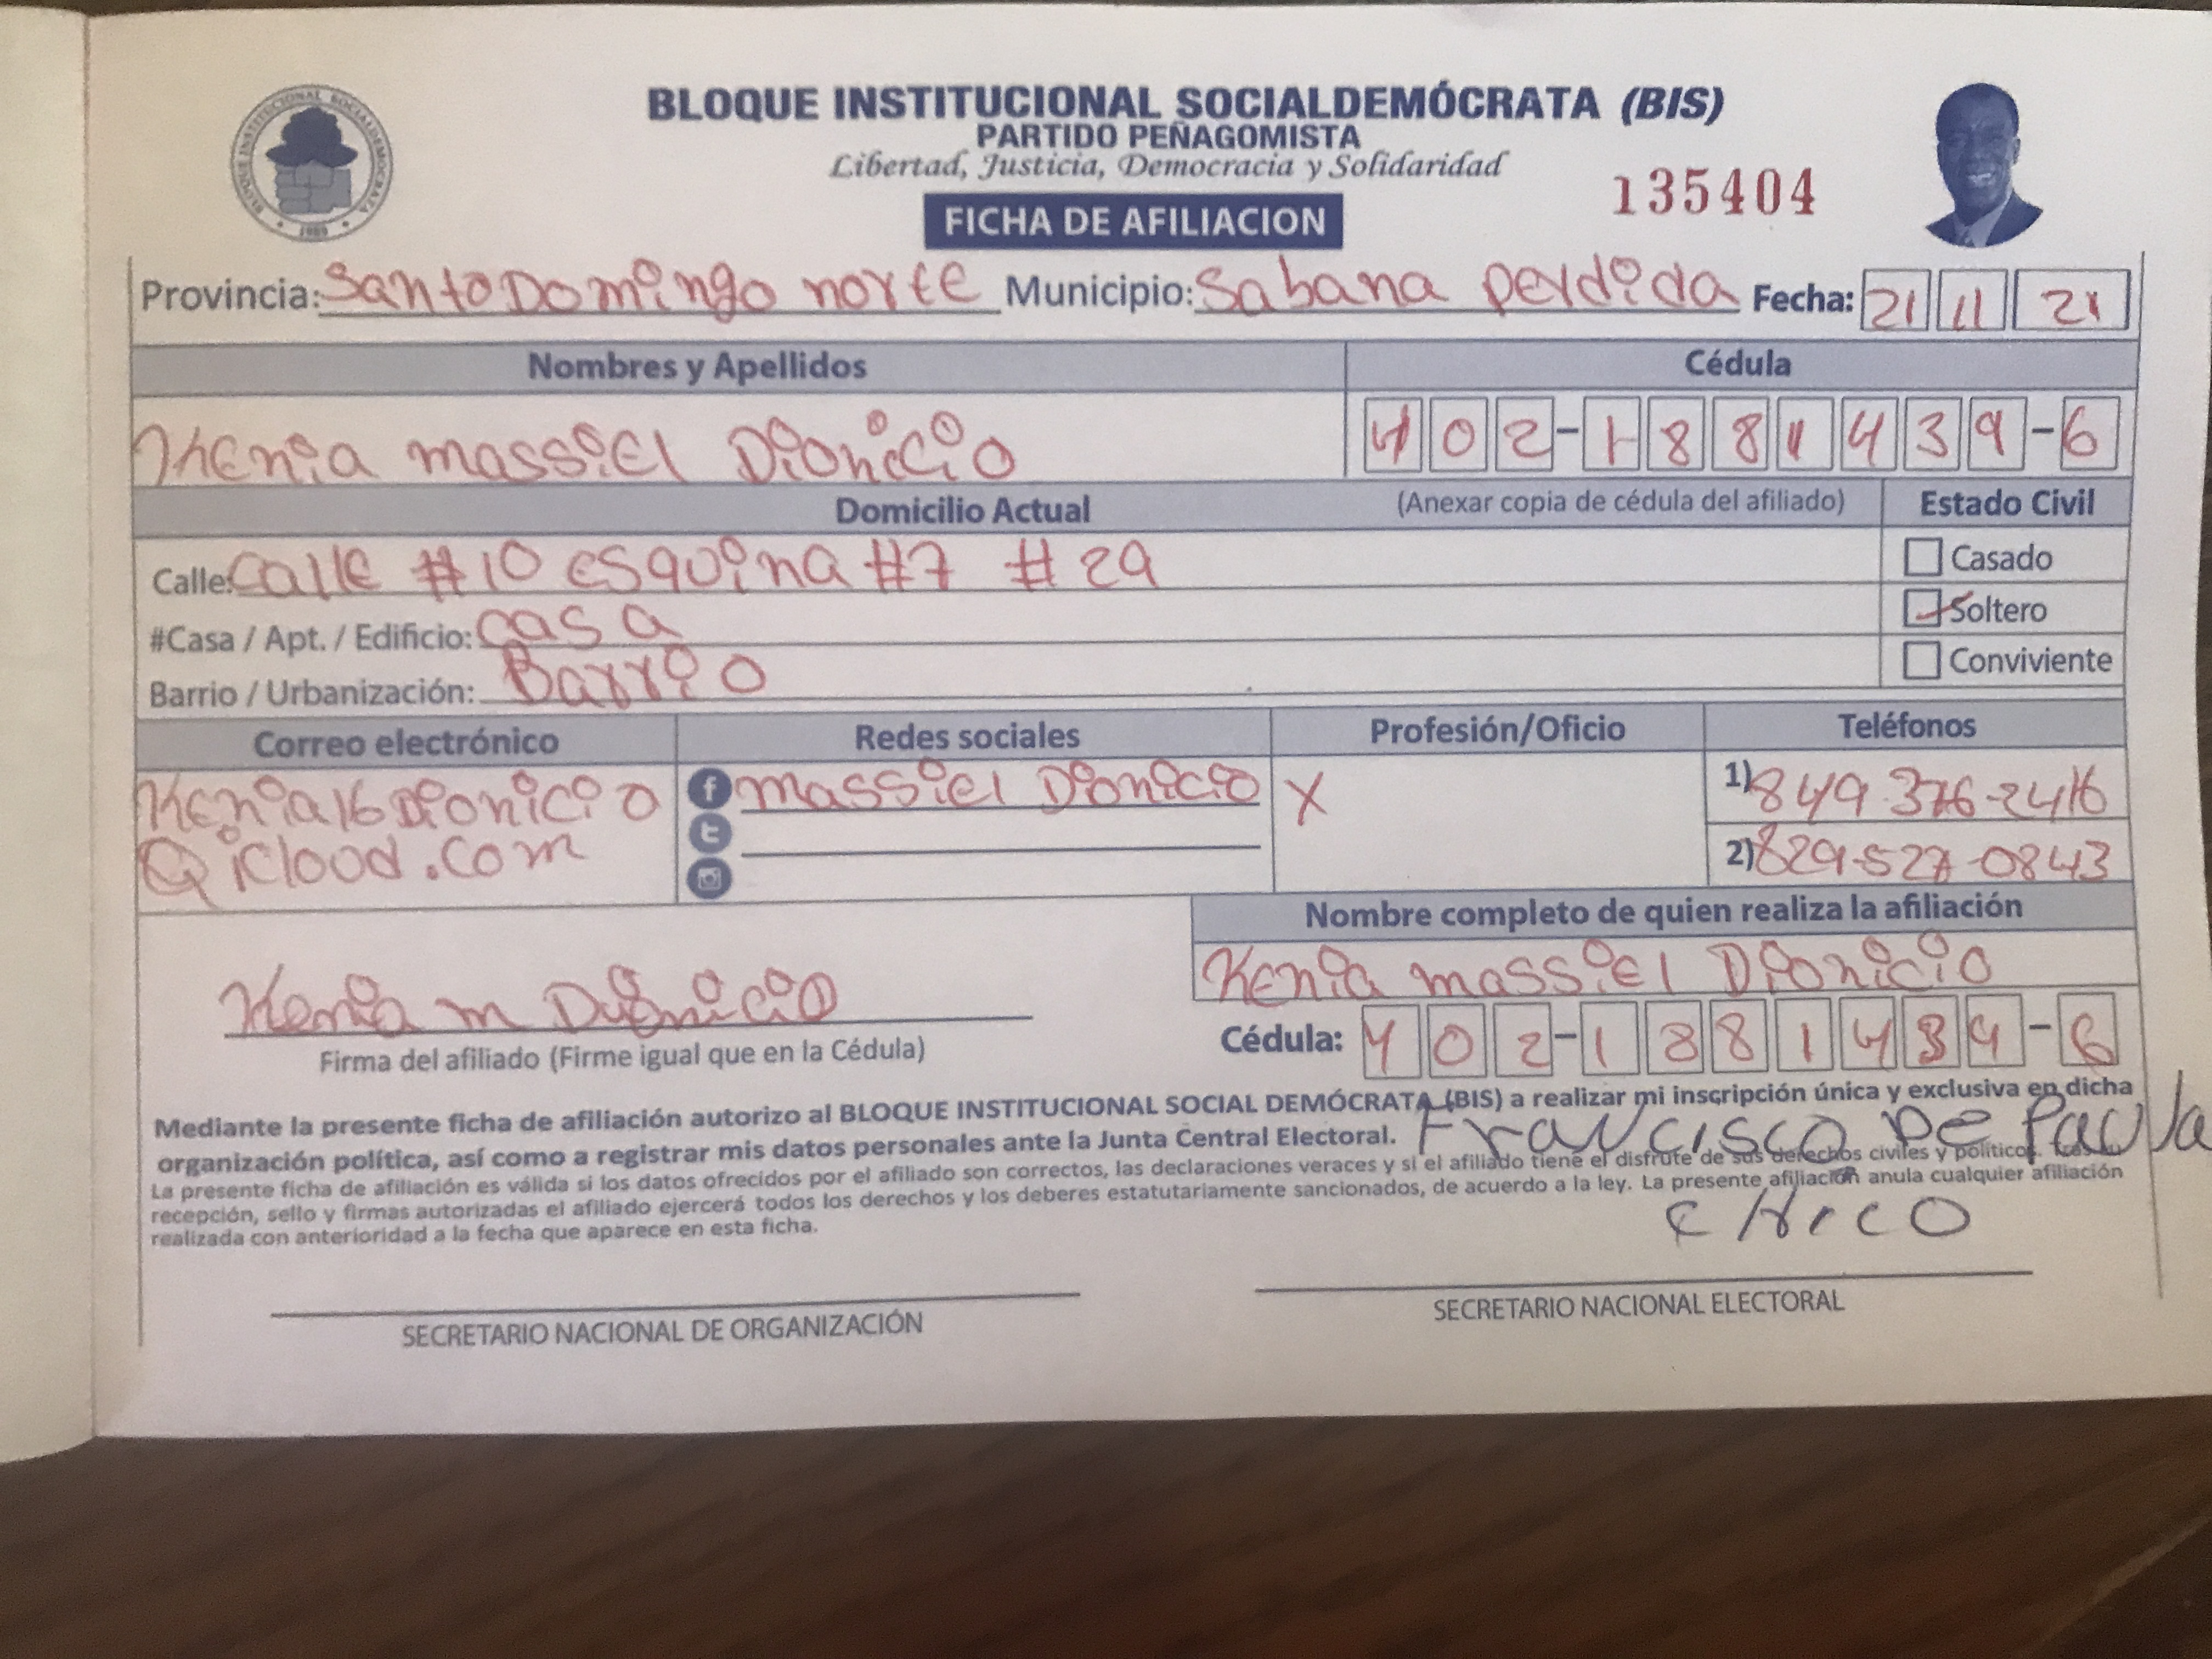 BLOQUE INSTITUCIONAL SOCIALDEMÓCRATA (BIS)
PARTIDO PEÑAGOMISTA
Libertad, Justicia, Democracia y Solidaridad
135404
BLOQUE INSTITUCIONAL SOCIALDEMOCRATA
FICHA DE AFILIACION
Provincia: Santo Domingo norte Municipio: Sabana perdida Fecha: 21 11 21
Nombres y Apellidos Cédula
Kenia massiel Dionicio 402-1881439-6
Domicilio Actual (Anexar copia de cédula del afiliado) Estado Civil
Calle: Calle #10 esquina #7 #29 Casado
#Casa / Apt. / Edificio: casa Soltero
Barrio / Urbanización: Barrio Conviviente
Correo electrónico Redes sociales Profesión/Oficio Teléfonos
Kenia16Dionicio massiel Dionicio X 1) 849-376-2416
@icloud.com 2) 829-527-0843
Nombre completo de quien realiza la afiliación
Kenia massiel Dionicio
Kenia m Dionicio
Firma del afiliado (Firme igual que en la Cédula) Cédula: 402-1881439-6
Mediante la presente ficha de afiliación autorizo al BLOQUE INSTITUCIONAL SOCIAL DEMÓCRATA (BIS) a realizar mi inscripción única y exclusiva en dicha
organización política, así como a registrar mis datos personales ante la Junta Central Electoral. Francisco De Paula
La presente ficha de afiliación es válida si los datos ofrecidos por el afiliado son correctos, las declaraciones veraces y si el afiliado tiene el disfrute de sus derechos civiles y políticos.
recepción, sello y firmas autorizadas el afiliado ejercerá todos los derechos y los deberes estatutariamente sancionados, de acuerdo a la ley. La presente afiliación anula cualquier afiliación
realizada con anterioridad a la fecha que aparece en esta ficha.
CHICO
SECRETARIO NACIONAL DE ORGANIZACIÓN SECRETARIO NACIONAL ELECTORAL